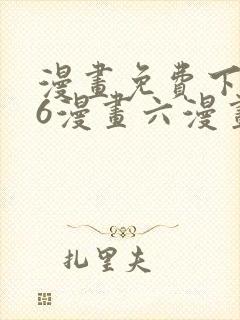 漫畫免費下
6漫畫六漫畫
扎里夫